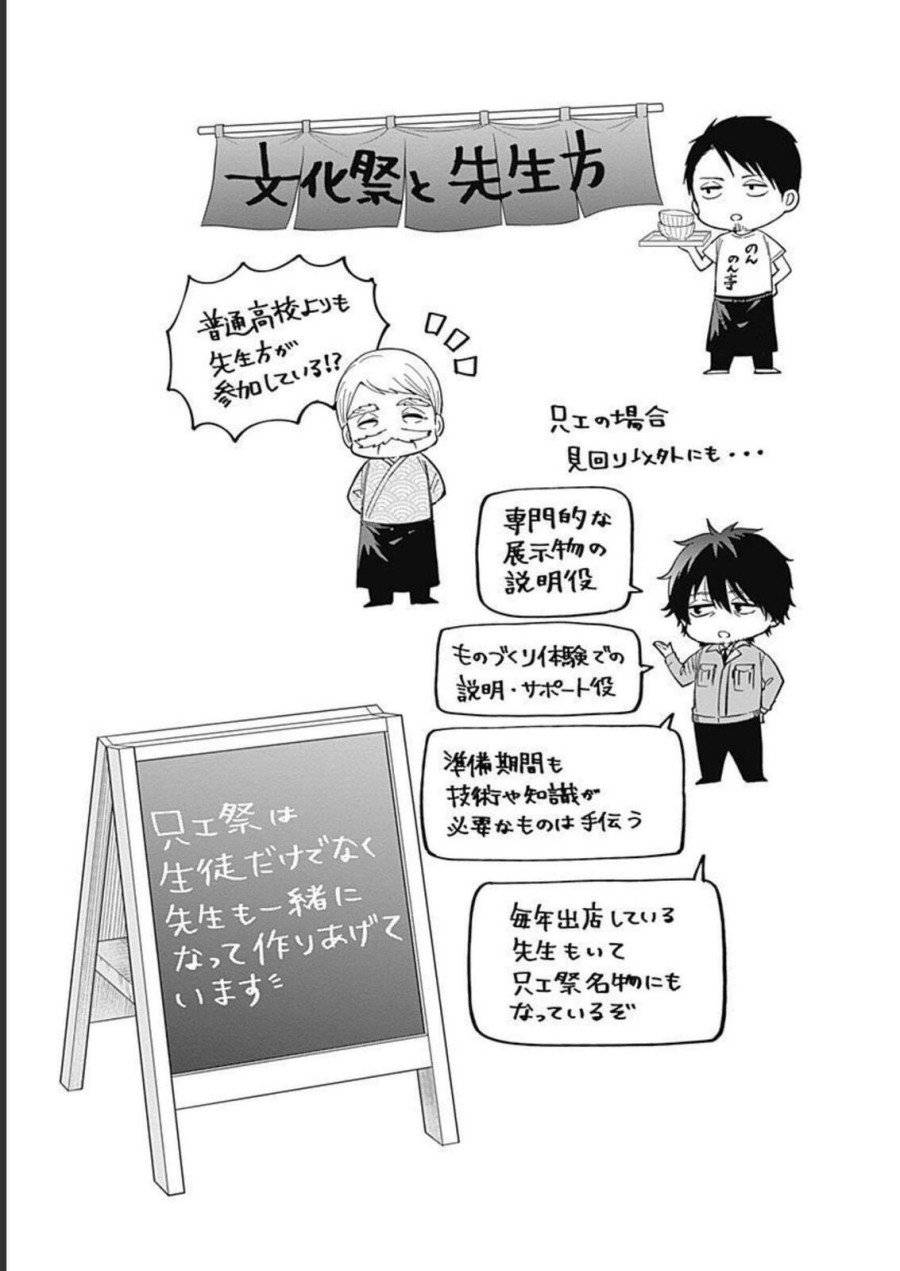 文化祭と先生方
のん
のん亭
普通高校よりも
先生方が
参加している!?
只工の場合
見回り以外にも・・・
専門的な
展示物の
説明役
ものづくり体験での
説明・サポート役
準備期間も
技術や知識が
必要なものは手伝う
毎年出店している
先生もいて
只工祭名物にも
なっているぞ
只工祭は
生徒だけでなく
先生も一緒に
なって作りあげて
います